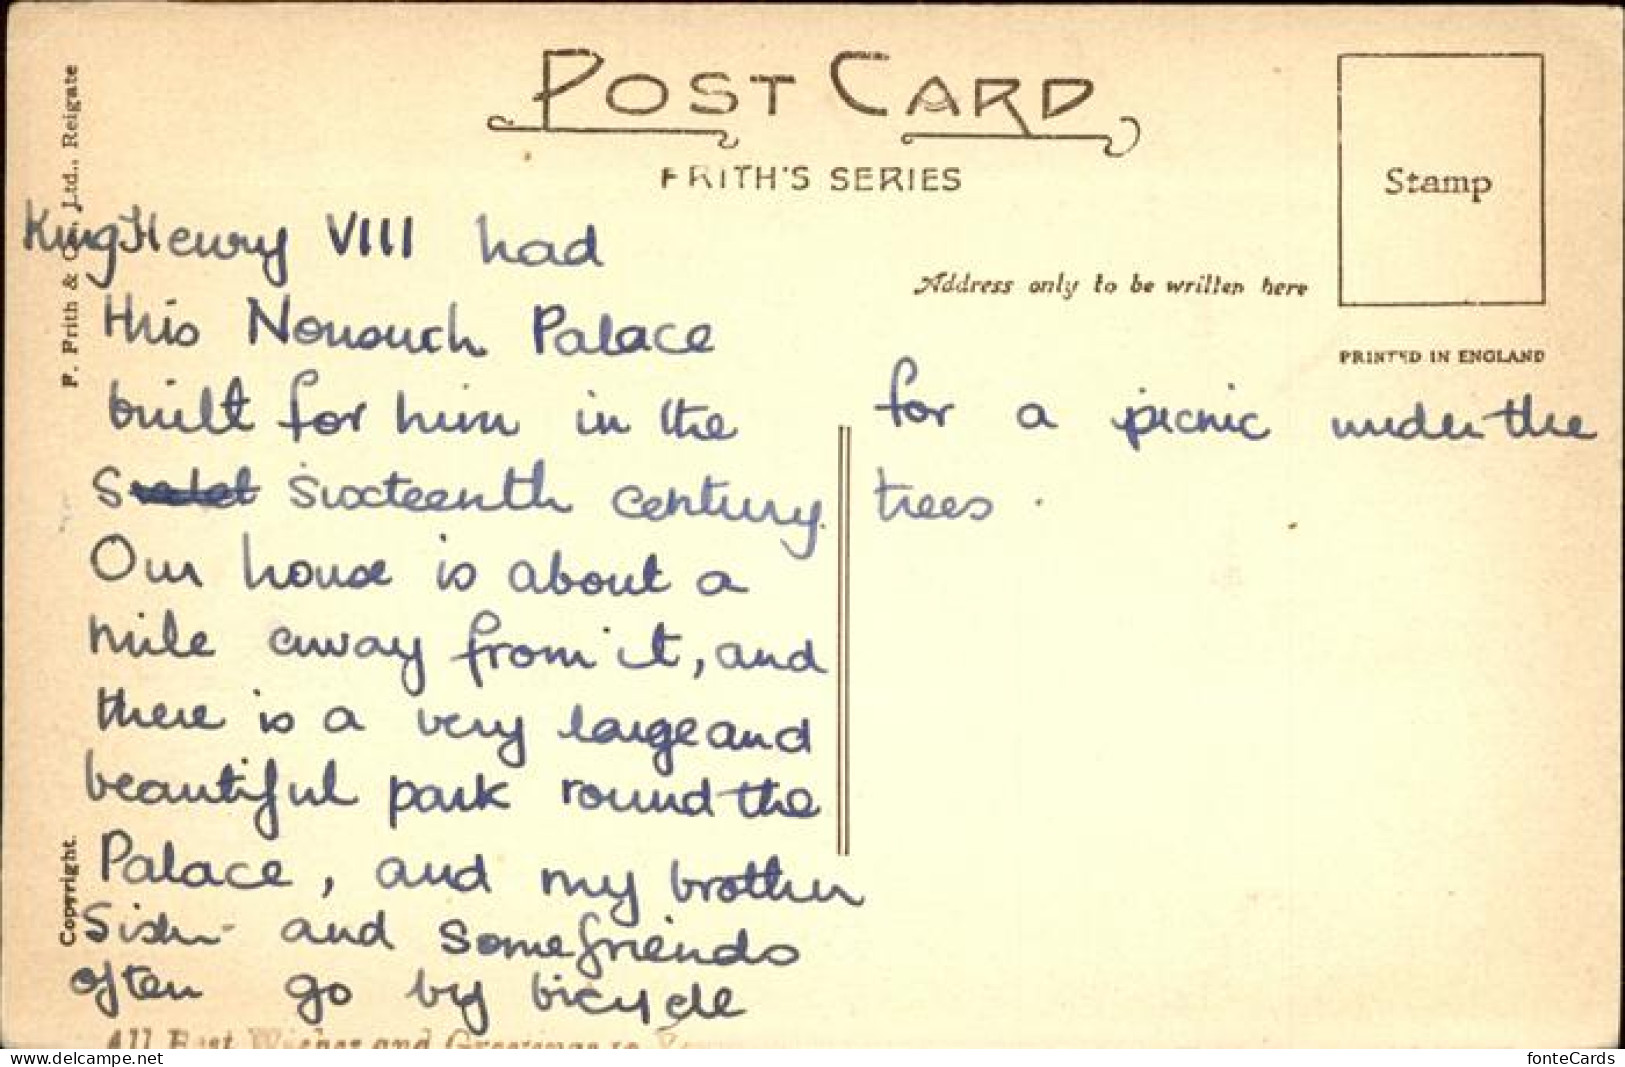 POST CARD
FRITH'S SERIES
Stamp
Address only to be written here
PRINTED IN ENGLAND
F. Frith & Co., Ltd., Reigate
Copyright.
King Henry VIII had
this Nonsuch Palace
built for him in the
sixteenth century.
Our house is about a
mile away from it, and
there is a very large and
beautiful park round the
Palace, and my brother
Sister and some friends
often go by bicycle
for a picnic under the
trees.
All Best Wishes and Greetings to
delcampe.net
fonteCards